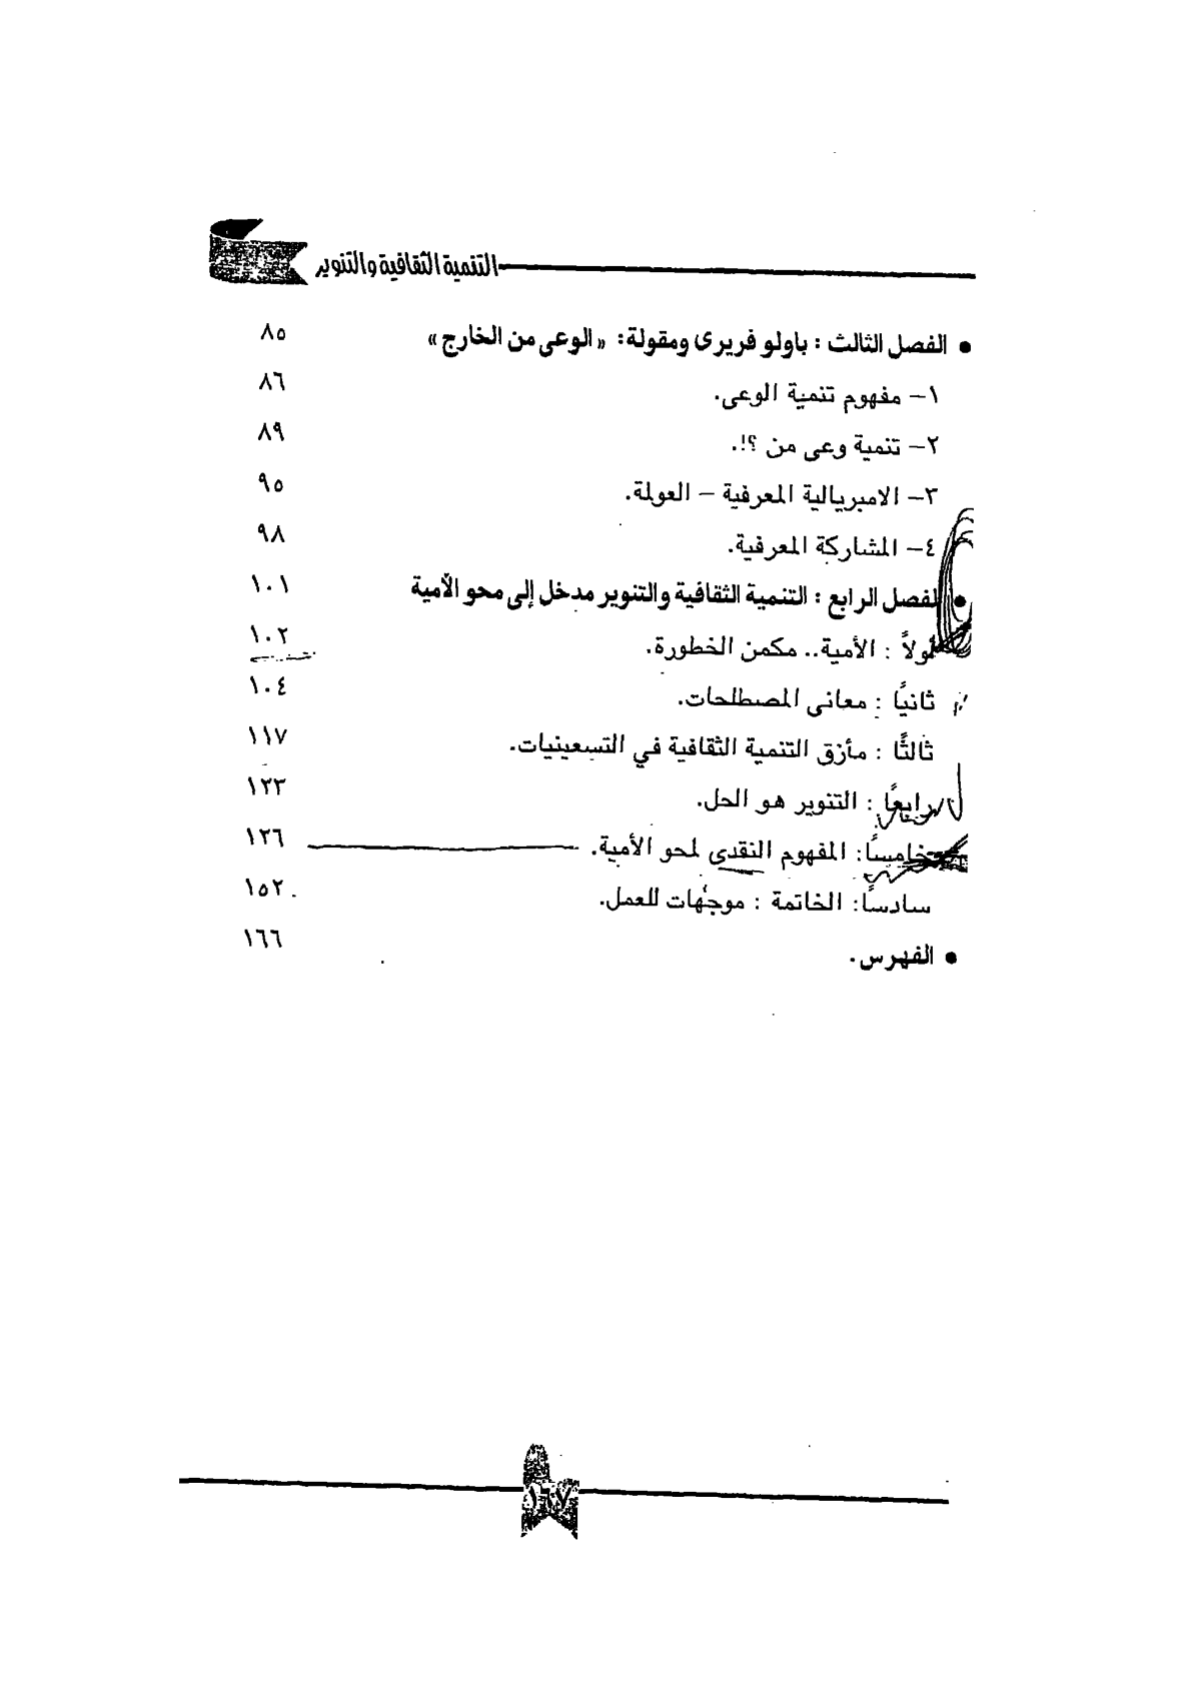 التنمية الثقافية والتنوير
● الفصل الثالث : باولو فريرى ومقولة: « الوعى من الخارج » ٨٥
١– مفهوم تنمية الوعى. ٨٦
٢– تنمية وعى من ؟!. ٨٩
٣– الامبريالية المعرفية – العولمة. ٩٥
٤– المشاركة المعرفية. ٩٨
● الفصل الرابع : التنمية الثقافية والتنوير مدخل إلى محو الأمية ١٠١
أولاً : الأمية.. مكمن الخطورة. ١٠٢
ثانيًا : معانى المصطلحات. ١٠٤
ثالثًا : مأزق التنمية الثقافية في التسعينيات. ١١٧
رابعًا : التنوير هو الحل. ١٢٣
خامسًا: المفهوم النقدى لمحو الأمية. ١٢٦
سادسًا: الخاتمة : موجهات للعمل. ١٥٢
● الفهرس. ١٦٦
١٦٧